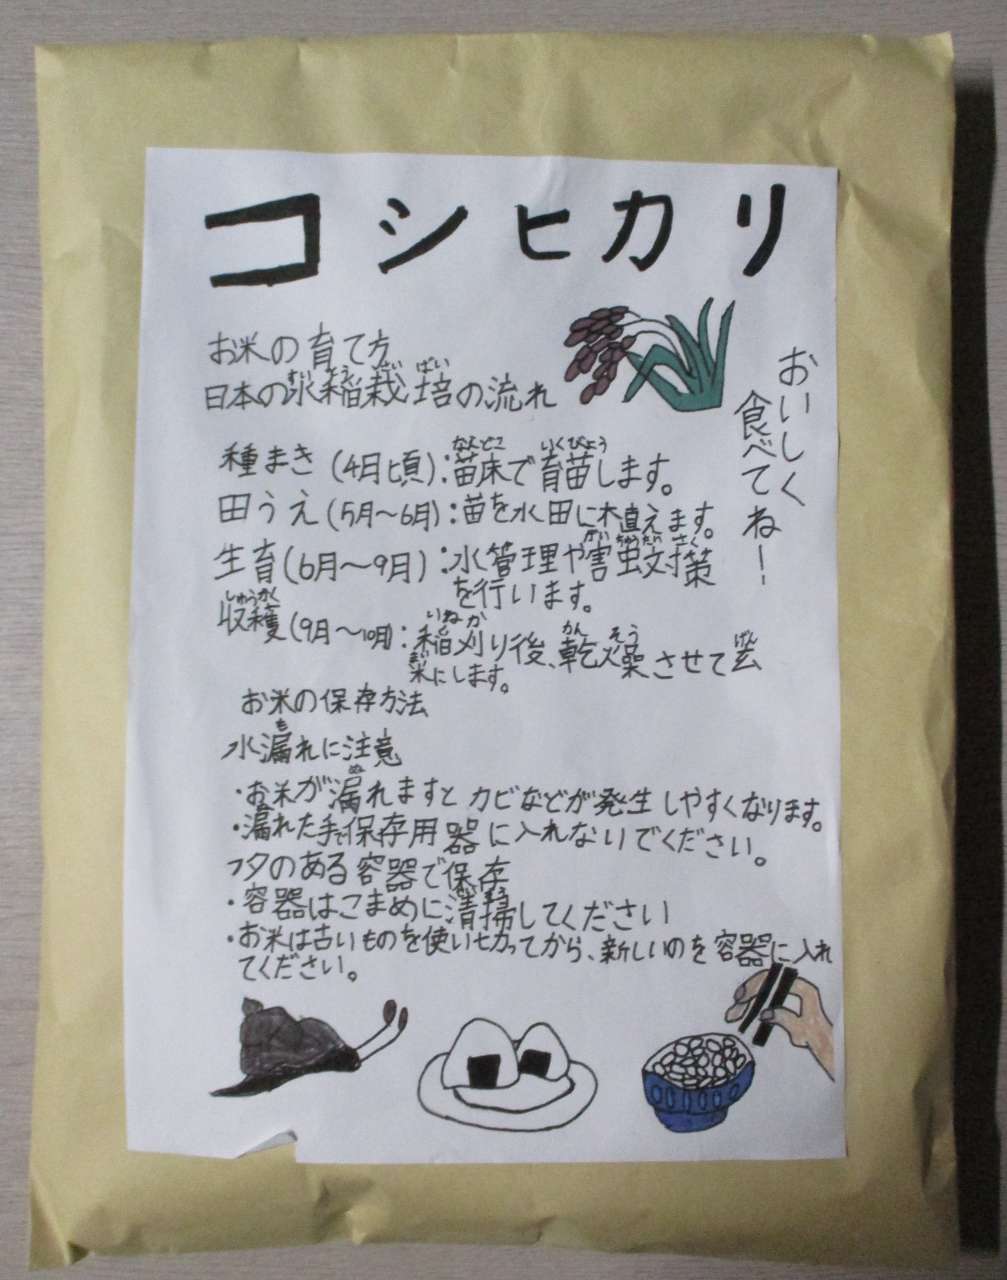 コシヒカリ
お米の育て方
日本の水稲栽培の流れ
種まき(4月頃):苗床で育苗します。
田うえ(5月〜6月):苗を水田に植えます。
生育(6月〜9月):水管理や害虫対策
を行います。
収穫(9月〜10月):稲刈り後、乾燥させて玄
米にします。
お米の保存方法
水漏れに注意
・お米が漏れますとカビなどが発生しやすくなります。
・漏れた手で保存用器に入れないでください。
フタのある容器で保存
・容器はこまめに清掃してください
・お米は古いものを使い切ってから、新しいのを容器に入れ
てください。
おいしく
食べてねー